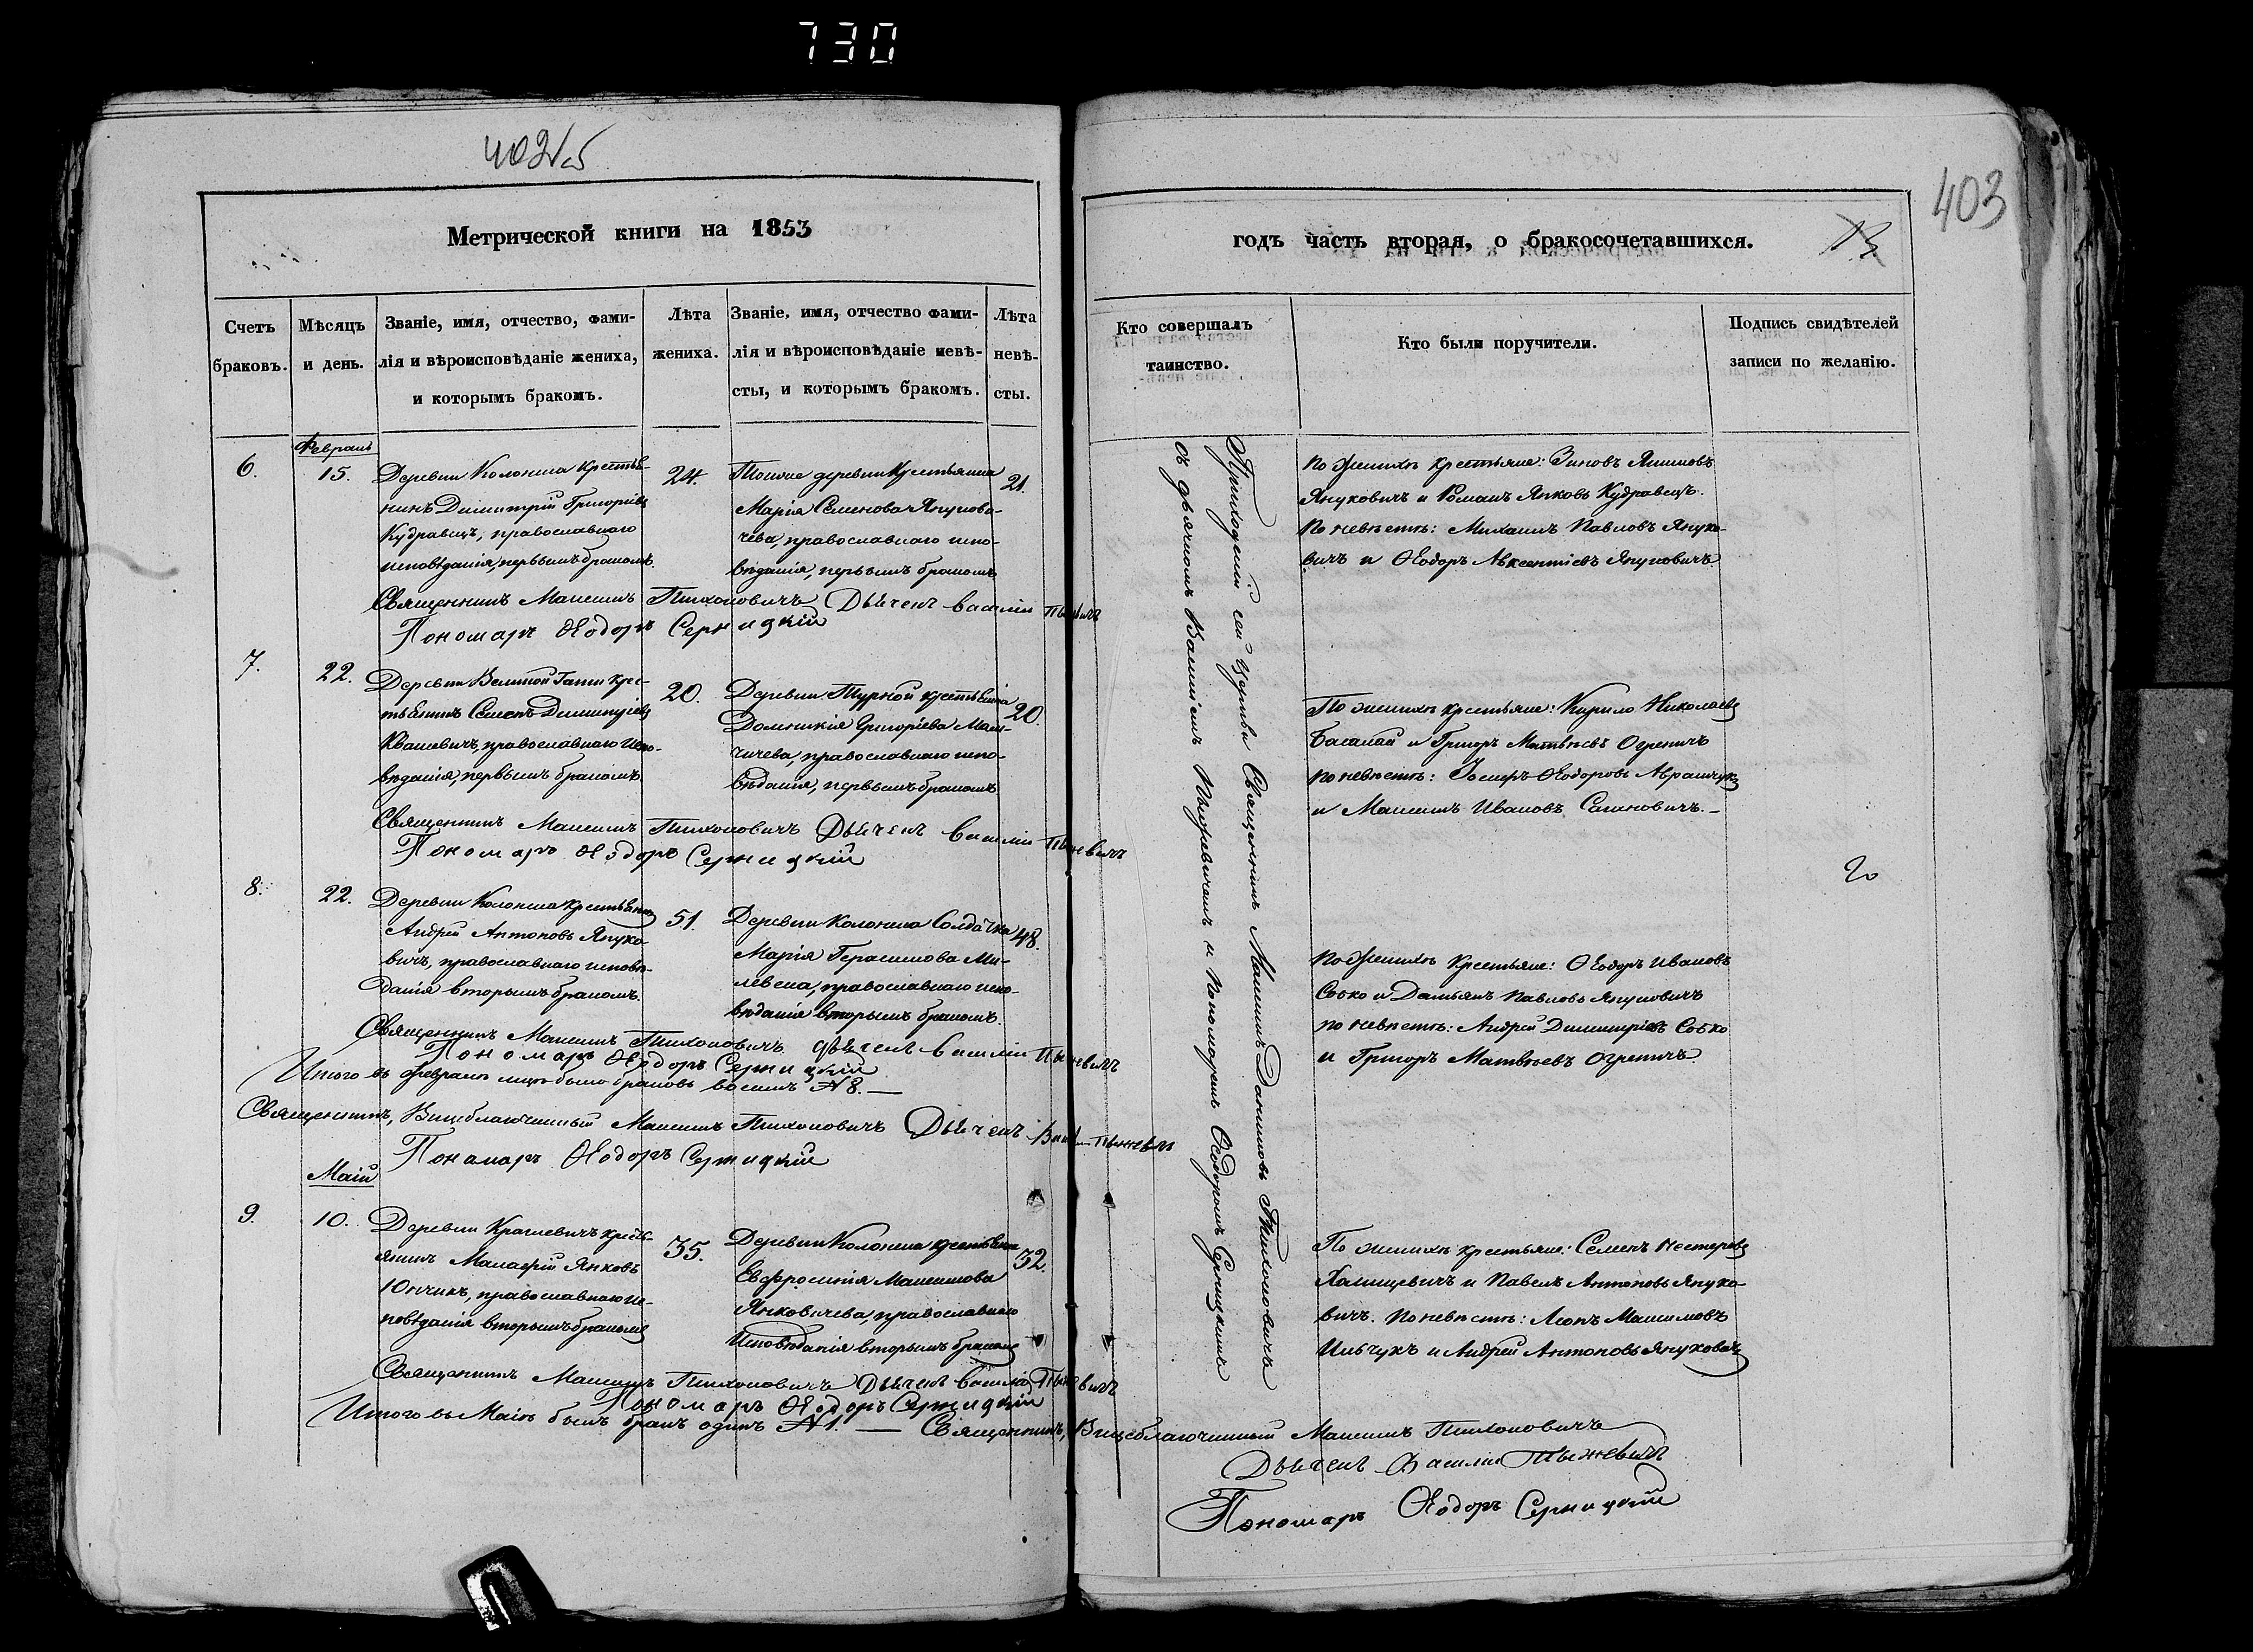 730
402об
403
Метрической книги на 1853
годъ часть вторая, о бракосочетавшихся.
Счетъ браковъ.
Мѣсяцъ и день.
Званіе, имя, отчество, фами-
лія и вѣроисповѣданіе жениха,
и которымъ бракомъ.
Лѣта
жениха.
Званіе, имя, отчество фами-
лія и вѣроисповѣданіе невѣ-
сты, и которымъ бракомъ.
Лѣта
невѣ-
сты.
Кто совершалъ
таинство.
Кто были поручители.
Подпись свидѣтелей
записи по желанію.
Февраль
6.
15.
Деревни Колонска крестья-
нинъ Димитрій Григоріевъ
Кудравецъ, православнаго
исповѣданія, первымъ бракомъ.
24.
Тоиже деревни Крестьянка
Марія Семенова Янукови-
чева, православнаго испо-
вѣданія, первымъ бракомъ
21.
По женихѣ крестьяне: Зиновъ Якимовъ
Януковичъ и Романъ Янковъ Кудравецъ.
По невѣстѣ: Михаилъ Павловъ Януко-
вичъ и Ѳеодоръ Авксентіевъ Януковичъ
Священникъ Максимъ Тихоновичъ Дьячекъ Василій
Пономарь Ѳеодоръ Серницкій
7.
22.
Деревни Великой Гати крес-
тьянинъ Семенъ Димитріевъ
Квашевичъ, православнаго испо-
вѣданія, первымъ бракомъ
20.
Деревни Турной крестьянка
Домникія Григоріева
православнаго испо-
вѣданія, первымъ бракомъ
20.
По женихѣ крестьяне: Кирило Николаевъ
Басалай и Григоръ Матвѣевъ Огревичъ
по невѣстѣ: Іосифъ Ѳеодоровъ Абрамчукъ
и Максимъ Ивановъ Сагановичъ.
Священникъ Максимъ Тихоновичъ Дьячекъ Василій
Пономарь Ѳеодоръ Серницкій
8.
22.
Деревни Колонска крестьянинъ
Андрей Антоновъ Януко-
вичъ, православнаго исповѣ-
данія вторымъ бракомъ.
51.
Деревни Колонска Солдатка
Марія Герасимова
православнаго испо-
вѣданія вторымъ бракомъ.
48.
По женихѣ Крестьяне: Ѳеодоръ Ивановъ
Собко и Дамьянъ Павловъ Януковичъ
по невѣстѣ: Андрей Димитріевъ Собко
и Григоръ Матвѣевъ Огревичъ.
Священникъ Максимъ Тихоновичъ Дьячекъ Василій
Пономарь Ѳеодоръ Серницкій
Итого въ февралѣ мцѣ было браковъ восемь №8. —
Священникъ, Вицеблагочинный Максимъ Тихоновичъ Дьячекъ
Пономарь Ѳеодоръ Серницкій
Маій
9.
10.
Деревни Крагиевичъ кресть-
янинъ Малафій Янковъ
Юнчикъ, православнаго ис-
повѣданія вторымъ бракомъ
35.
Деревни Колонска крестьянка
Евфросинія Максимова
Янковичева, православнаго
исповѣданія вторымъ бракомъ
32.
По женихѣ крестьяне: Семенъ Нестеровъ
Халицевичъ и Павелъ Антоновъ Януко-
вичъ. По невѣстѣ: Леонъ Максимовъ
Ильчукъ и Андрей Антоновъ Януковичъ
Священникъ Максимъ Тихоновичъ Дьячекъ Василій
Пономарь Ѳеодоръ Серницкій
Итого въ Маіѣ былъ бракъ одинъ №1. — Священникъ, Вицеблагочинный Максимъ Тихоновичъ
Дьячекъ Василій
Пономарь Ѳеодоръ Серницкій
Приходскій сей церкви Священникъ Максимъ Данииловъ Тихоновичъ
съ дьячкомъ Василіемъ и пономаремъ Ѳеодоромъ Серницкимъ